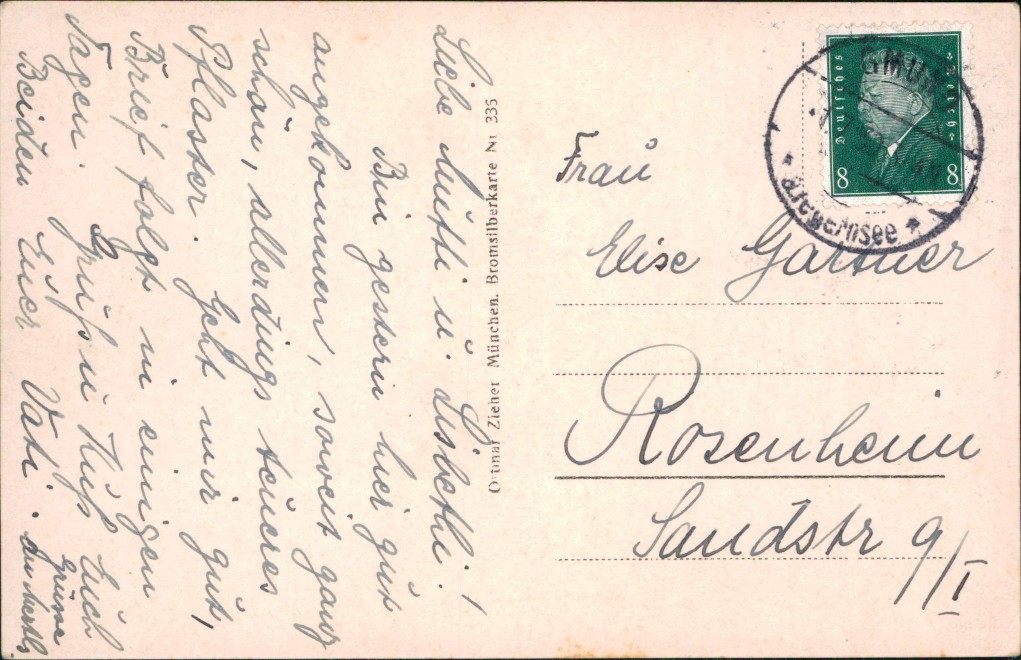 Liebe Mutti u. Lisbeth!
Bin gestern hier gut
angekommen, soweit ganz
schön, allerdings teueres
Pflaster. Geht mir gut,
Brief folgt in einigen
Tagen. Gruß u Kuß Euch
Beiden Euer Vati.
Grüße
Ottmar Zieher München. Bromsilberkarte Nr 335
Deutsches Reich
8 8
GMUND
* a.Tegernsee *
Frau
Elise Gartner
Rosenheim
Sandstr 9/I